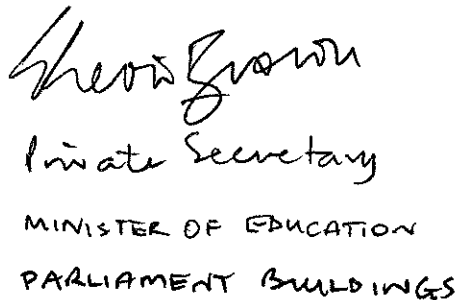 Private Secretary
MINISTER OF EDUCATION
PARLIAMENT BUILDINGS